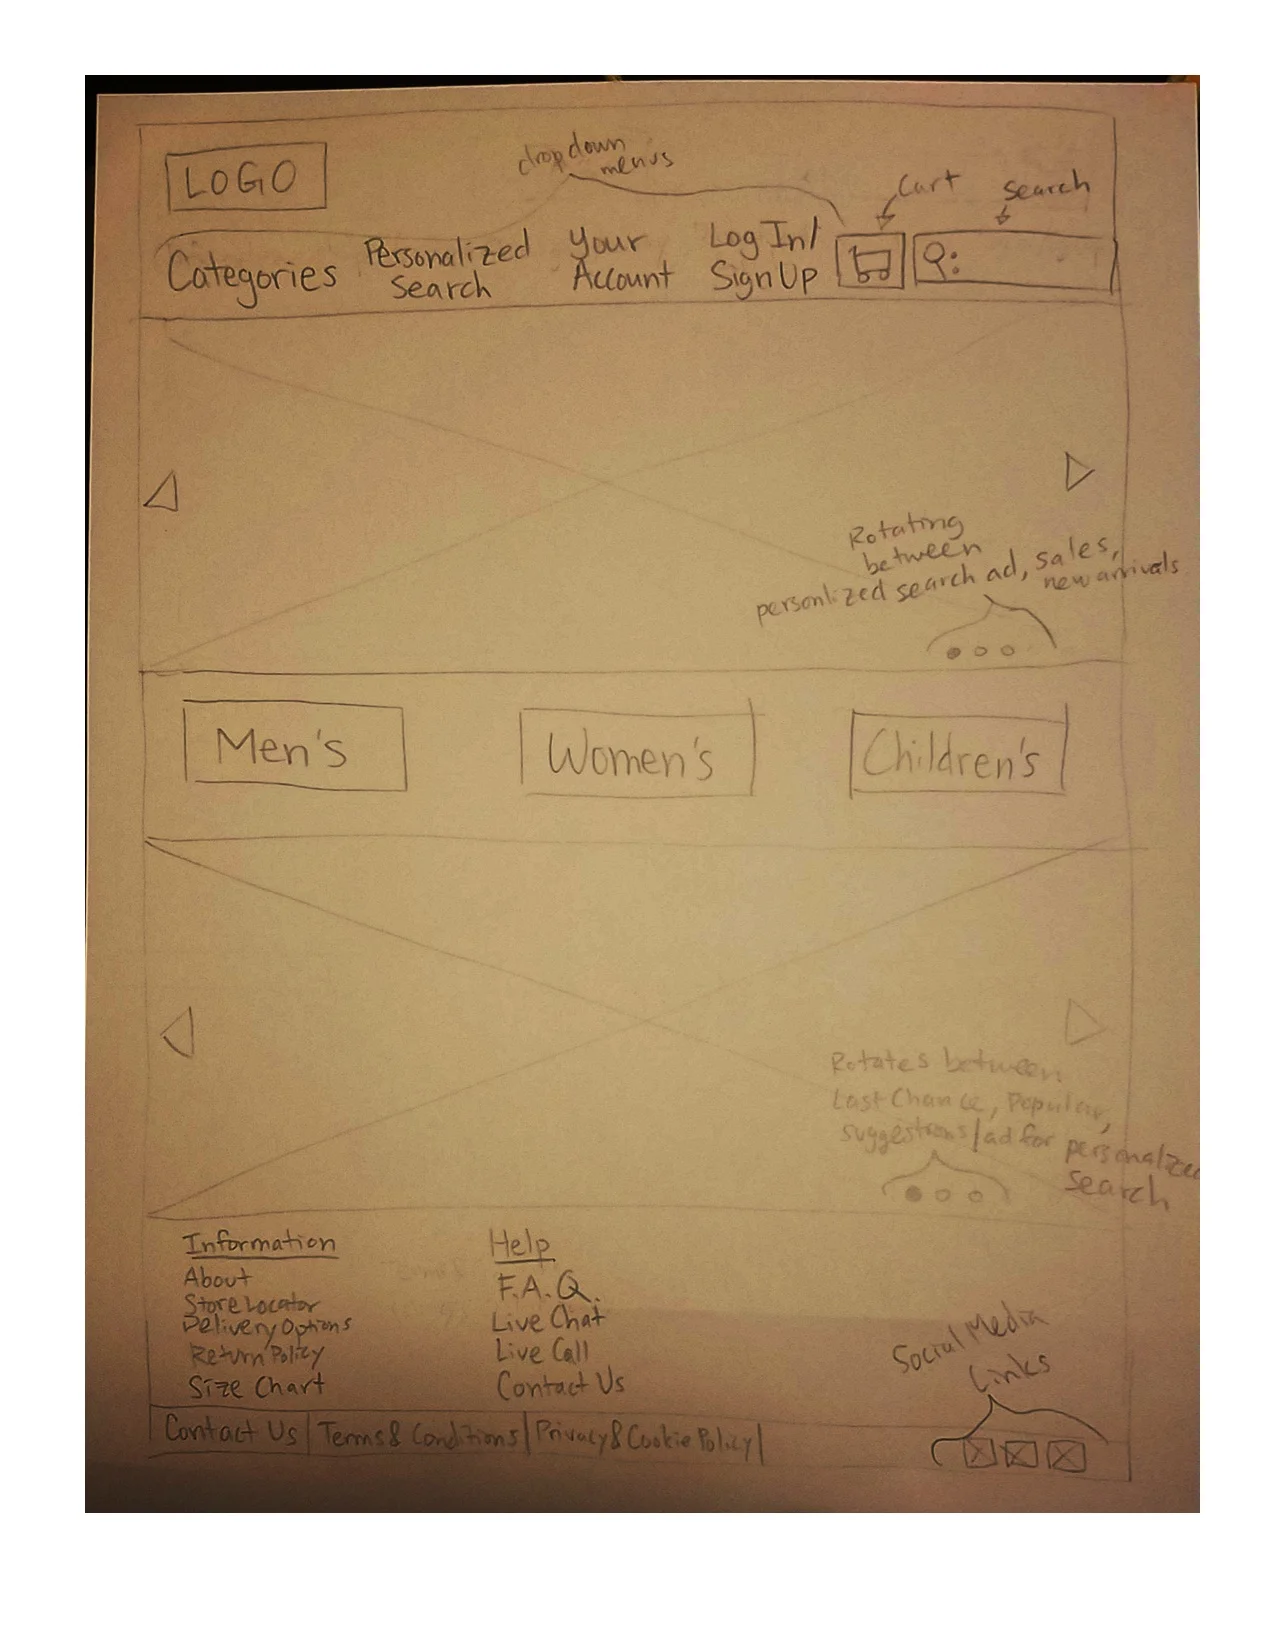 LOGO
dropdown
menus
Cart
search
Categories
Personalized
Search
Your
Account
Log In/
Sign Up
Rotating
between
personlized search ad, sales,
new arrivals
Men's
Women's
Children's
Rotates between
Last Chance, Popular,
suggestions/ad for personalized
search
Information
About
Store Locator
Delivery Options
Return Policy
Size Chart
Help
F.A.Q.
Live Chat
Live Call
Contact Us
Social Media
Links
Contact Us | Terms & Conditions | Privacy & Cookie Policy |